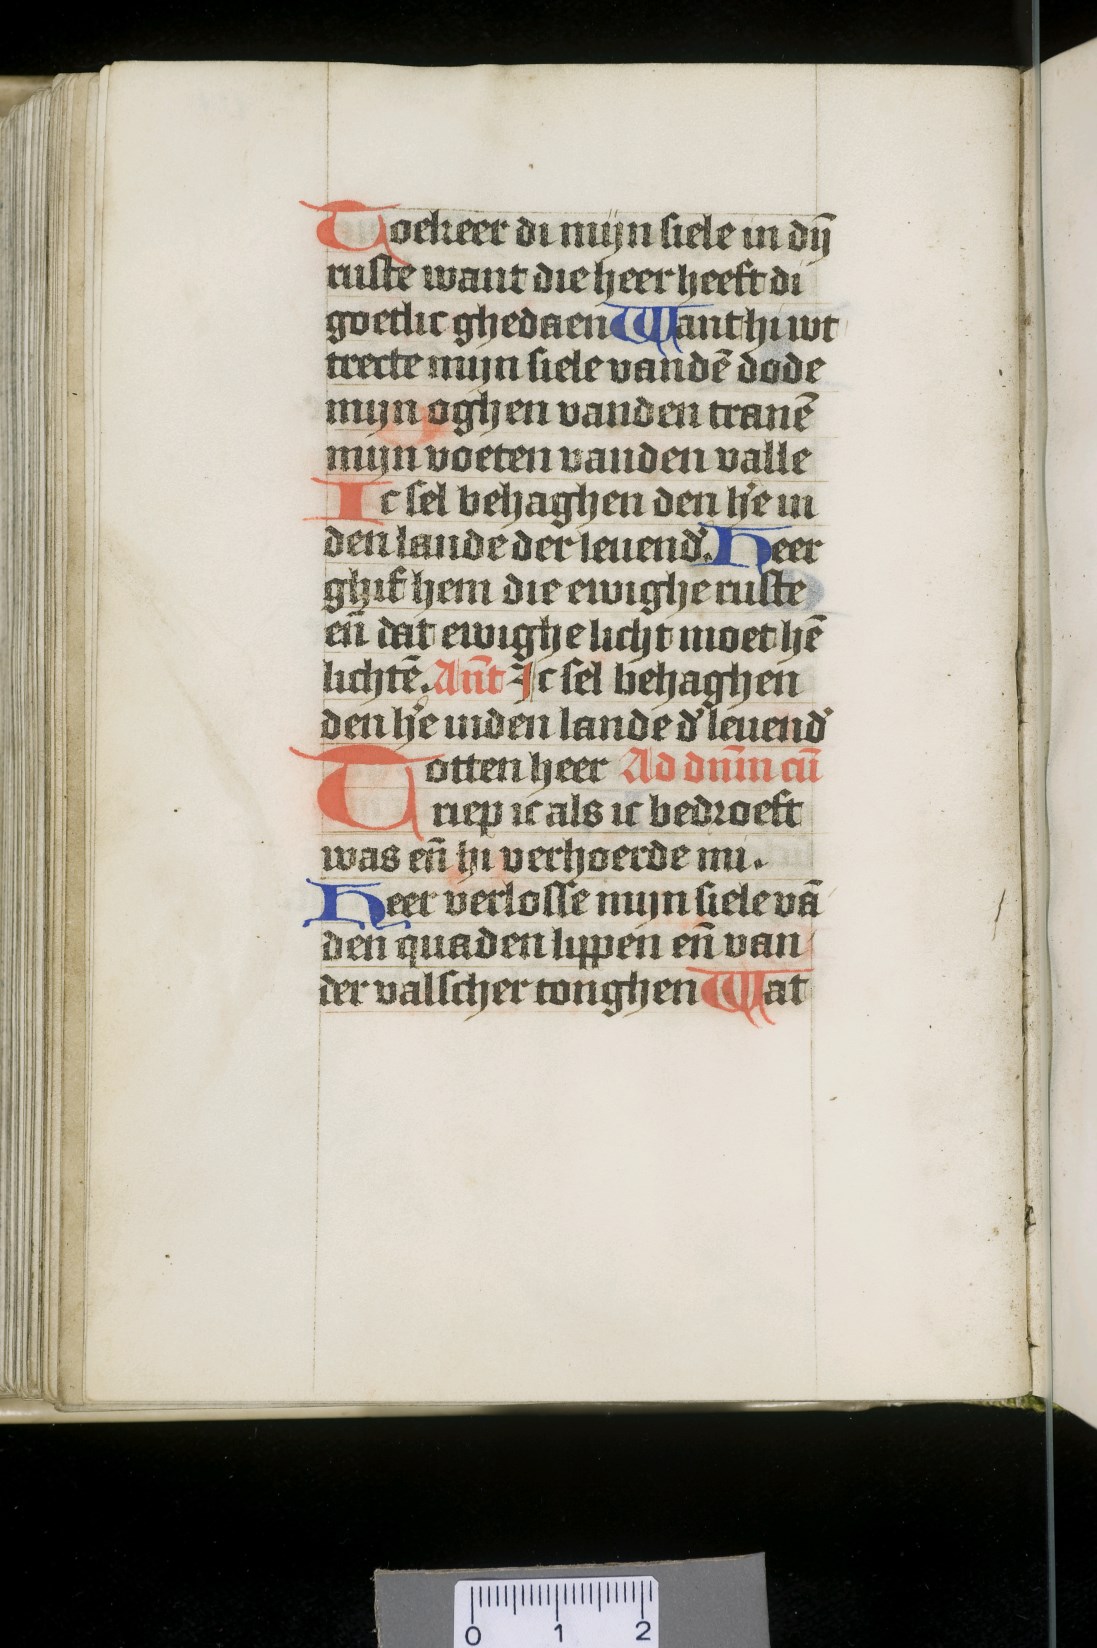 Toekeer di mijn siele in dij̄
ruste want die heer heeft di
goetlic ghedaen Want hi wt
trecte mijn siele vandē dode
mijn oghen vanden tranē
mijn voeten vanden valle
Ic sel behaghen den h'e in
den lande der leuend'. Heer
ghif hem die ewighe ruste
en̄ dat ewighe licht moet hē
lichtē. An̄t Ic sel behaghen
den h'e inden lande d' leuend'
Totten heer Ad dn̄m cū
riep ic als ic bedroeft
was en̄ hi verhoerde mi.
Heer verlosse mijn siele vā
den quaden lippen en̄ van
der valscher tonghen Wat
0 1 2